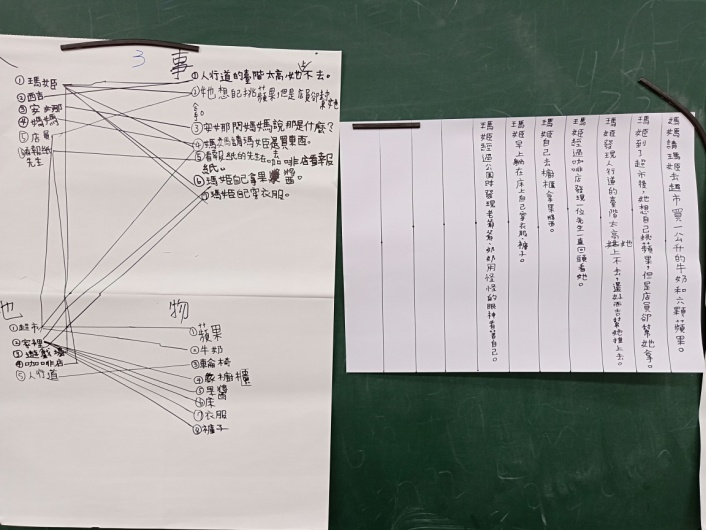 3
事
①瑪姬
②西吉
③安娜
④媽媽
⑤店員
⑥看報紙
先生
①人行道的臺階太高她上不去。
②她想自己挑蘋果,但是店員卻幫她
拿。
③安娜問媽媽說那是什麼?
④媽媽請瑪姬去買東西。
⑤看報紙的先生在咖啡店看報
紙。
⑥瑪姬自己拿果醬。
⑦瑪姬自己穿衣服。
地
①超市
②家裡
③遊戲場
④咖啡店
⑤人行道
物
①蘋果
②牛奶
③輪椅
④櫥櫃
⑤果醬
⑥床
⑦衣服
⑧褲子
媽媽請瑪姬去超市買一公升的牛奶和六顆蘋果。
瑪姬到了超市後,她想自己挑蘋果,但是店員卻幫她拿。
瑪姬發現人行道的臺階太高,她上不去,還好西吉幫她推上去。
瑪姬經過咖啡店發現一位先生一直回頭看她。
瑪姬自己去櫥櫃拿果醬。
瑪姬早上躺在床上自己穿衣服、褲子。
瑪姬經過公園時發現老爺爺、奶奶用怪怪的眼神看著自己。